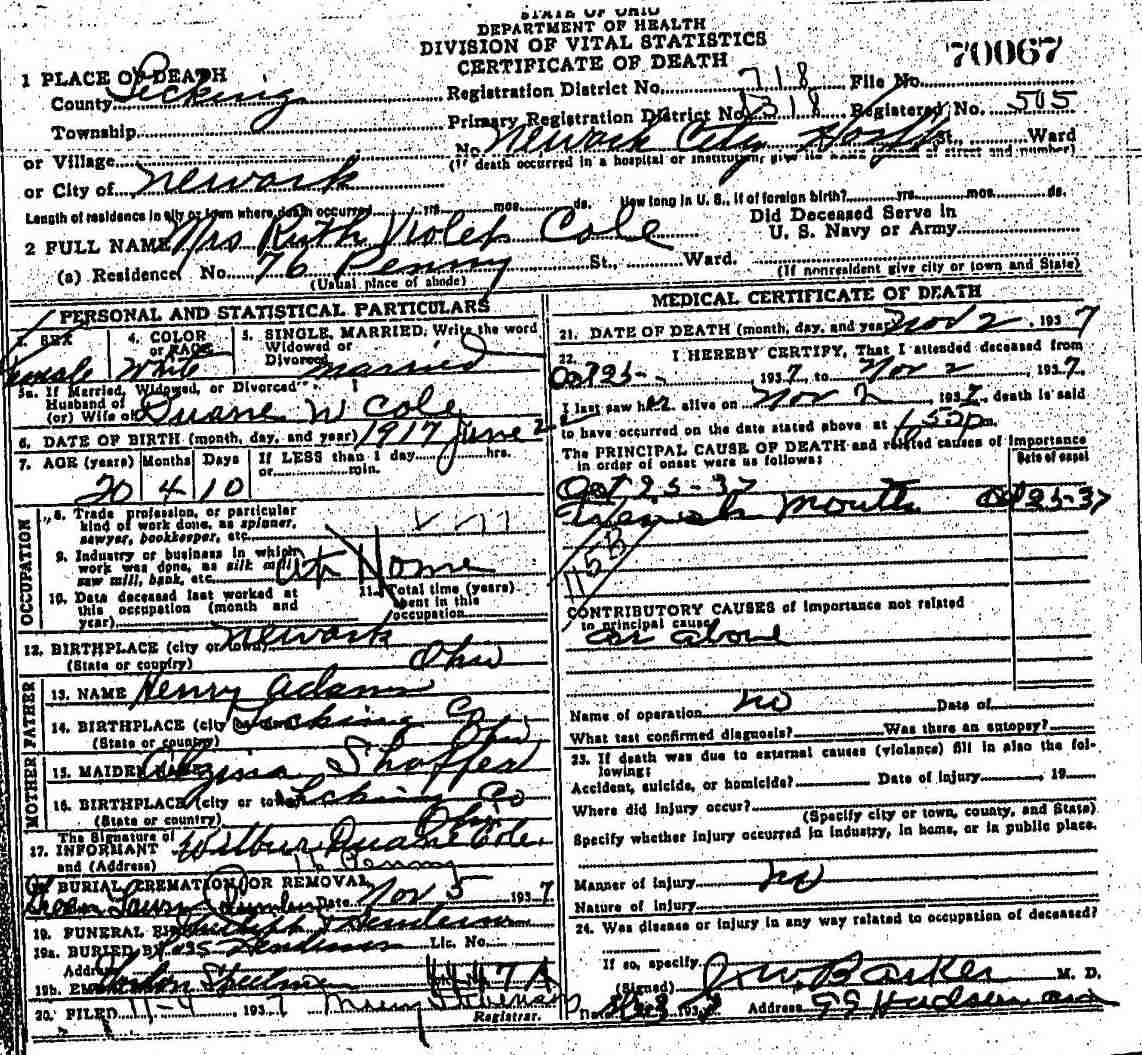 STATE OF OHIO
DEPARTMENT OF HEALTH
DIVISION OF VITAL STATISTICS
CERTIFICATE OF DEATH
70067
1 PLACE OF DEATH
County Licking
Registration District No. 718 File No.
Township
Primary Registration District No. 8318 Registered No. 505
or Village
No. Newark City Hosp St., Ward
(If death occurred in a hospital or institution, give its name instead of street and number)
or City of Newark
Length of residence in city or town where death occurred yrs. mos. ds. How long in U. S., if of foreign birth? yrs. mos. ds.
2 FULL NAME Mrs Ruth Violet Cole
Did Deceased Serve in
U. S. Navy or Army
(a) Residence, No. 76 Penny St., Ward.
(Usual place of abode)
(If nonresident give city or town and State)
PERSONAL AND STATISTICAL PARTICULARS
3. SEX
Female
4. COLOR
or RACE
White
5. SINGLE, MARRIED, Write the word
Widowed or
Divorced
Married
5a. If Married, Widowed, or Divorced
Husband of
(or) Wife of Duane W Cole
6. DATE OF BIRTH (month, day, and year) 1917 June 22
7. AGE (years) Months Days If LESS than 1 day hrs.
or min.
20 4 10
OCCUPATION
8. Trade profession, or particular
kind of work done, as spinner,
sawyer, bookkeeper, etc.
9. Industry or business in which
work was done, as silk mill,
saw mill, bank, etc. At Home
10. Date deceased last worked at
this occupation (month and
year)
11. Total time (years)
spent in this
occupation
12. BIRTHPLACE (city or town) Newark
(State or country) Ohio
FATHER
13. NAME Henry Adams
14. BIRTHPLACE (city or town) Licking Co
(State or country) Ohio
MOTHER
15. MAIDEN NAME Shaffer
16. BIRTHPLACE (city or town) Licking Co
(State or country) Ohio
17. The Signature of
INFORMANT Wilbur Duane Cole
and (Address) 76 Penny
18. BURIAL, CREMATION OR REMOVAL
Date Nov 5 1937
19. FUNERAL
19a. BURIED BY Lic. No.
Address
19b. 4447A
20. FILED 11-4 1937
Registrar.
MEDICAL CERTIFICATE OF DEATH
21. DATE OF DEATH (month, day, and year) Nov 2, 1937
22. I HEREBY CERTIFY, That I attended deceased from
Oct 25 1937, to Nov 2, 1937.
I last saw her alive on Nov 2, 1937, death is said
to have occurred on the date stated above at 1:52 p m.
The PRINCIPAL CAUSE OF DEATH and related causes of importance
in order of onset were as follows:
Date of onset
Oct 25-37
Trench Mouth Oct 25-37
115B
CONTRIBUTORY CAUSES of importance not related
to principal cause
as above
Name of operation no Date of
What test confirmed diagnosis? Was there an autopsy?
23. If death was due to external causes (violence) fill in also the fol-
lowing:
Accident, suicide, or homicide? Date of injury 19
Where did injury occur?
(Specify city or town, county, and State)
Specify whether injury occurred in industry, in home, or in public place.
Manner of injury no
Nature of injury
24. Was disease or injury in any way related to occupation of deceased?
If so, specify
(Signed) J. W. Barker M. D.
Address Hudson